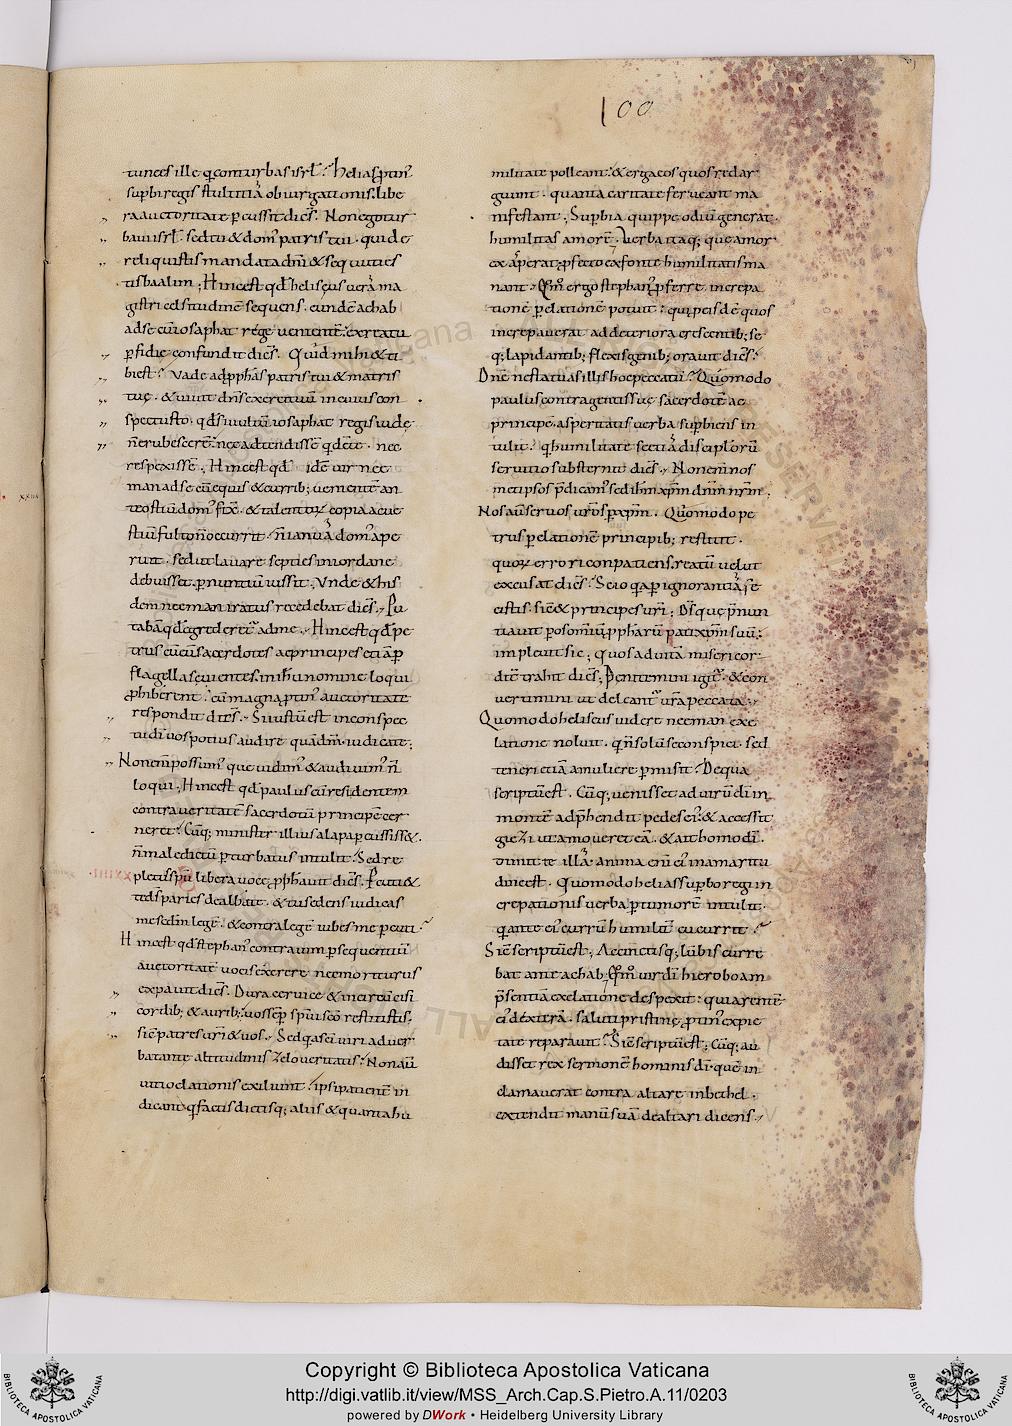 100
tunc es ille q conturbas isrl. Helias ptin'
supbi regis stultitiã obiurgationis libe
ra auctoritate pcussit dicẽs. Non ego tur
baui isrl. sed tu & dom' patris tui. qui de
reliquistis mandata dñi & sequuti es
tis baalim; Hinc est qd heliseus uerã ma
gistri celsitudinẽ sequens. eundẽ achab
ad se cũ iosaphat rege uenientẽ.
pfidie confundit dicẽs. Quid mihi & ti
bi est? Vade ad pphas patris tui & matris
tuę. & uiuit dñs exercituũ in cuius con
spectu sto. qd si uultũ iosaphat regis iude
ñ erubescerẽ. nec adtendissẽ qdẽ te. nec
respexissẽ; Hinc est qd idẽ uir nec
man ad se cũ equis & currib; uenientẽ an
te ostiũ dom' fixẽ. & talentor copia ac ue
stiũ fulto ñ occurrit. ñ ianuã dom' ape
ruit. sed ut lauare septies in iordane
debuisset. p nuntiũ iussit; Vnde & his
dem neeman iratus recedebat dicẽs. Pu
tabã qd egrederet' ad me. Hinc est qd pe
trus cũ eũ sacerdotes ac principes etiã p
flagella seuientes in ihu nomine loqui
phiberent. cũ magna ptin' auctoritate
respondit dicẽs. Si iustũ est in conspec
tu di uos potius audire quã dm. iudicate;
Non enĩ possum' que uidim' & audiuim' ñ
loqui; Hinc est qd paulus cũ residentem
contra ueritatẽ sacerdotũ principẽ cer
neret. Cũq; minister illius alapa pcussiss&.
ñ maledictũ pturbatus intulit. Sed re
pletus spu libera uoce pphauit dicẽs. Pcuti&
te ds paries dealbate. & tu sedens iudicas
me scdm legẽ. & contra legẽ iubes me pcuti.
Hinc est qd stephan' contra uim psequentiũ
auctoritatẽ uocis exerere nec moriturus
expauit dicẽs. Dura ceruice & incircũcisi
cordib; & aurib; uos semp spui sco restitistis.
sic patres uri & uos. Sed qa sci uiri ad uer
ba tante altitudinis zelo ueritatis. Non aũ
uitio elationis exiliunt. ipsi patentẽ in
dicant q factis dictisq; aliis & quanta hu
militate polleant. & erga eos quos redar
guunt. quanta caritate ferueant ma
nifestant; Supbia quippe odiũ generat.
humilitas amorẽ. Verba itaq; que amor
exaperat. pfecto ex fonte humilitatis ma
nant. Qm ergo stephan' pferre increpa
tionẽ p elationẽ potuit. qui p eisdẽ quos
increpauerat ad deteriora crescentib; se
q; lapidantib; flexis genib; orauit dicẽs.
Dne ne statuas illis hoc peccatũ. Quomodo
paulus contra gentis suę sacerdotẽ ac
principẽ. asperitatis uerba supbiens in
tulit. q humilitate sectiã disciplorũ
seruitio substernit dicẽs. Non enĩ nos
metipsos pdicam' sed ihm xpm dnm nrm.
Nos aũ seruos uros p xpm. Quomodo pe
trus p elationẽ principib; restitit.
quor errori conpatiens. reatũ uelut
excusat dicẽs. Scio qa p ignorantiã fe
cistis. sic & principes uri; Ds que pnun
tiauit p os omiũ ppharũ pati xpm suũ.
impleuit sic; Quos ad uitã misericor
diẽ trahit dicẽs. Penitemini igit'. & con
uertimini ut deleant' ura peccata.
Quomodo heliseus uidere neeman exe
latione noluit. q ñ solũ se conspici. sed
teneri etiã a muliere pmisit. De qua
scriptũ est. Cũq; uenisset ad uirũ di in
montẽ adphendit pedes ei'. & accessit
giezi ut amoueret eã. & ait homo di.
Dimitte illã. anima enĩ ei' in amaritu
dine est. Quomodo helias supbo regi in
crepationis uerba p tumorẽ intulit.
q ante ei' currũ humilit cucurrit.
Sic scriptũ est. Accinctisq; lũbis curre
bat ante achab. Qm uir di hieroboam
psentiã ex elatione despexit. qui arentẽ
ei' dexterã. saluti pristine ptin' ex pie
tate reparauit. Sic scriptũ est. Cũq; au
disset rex sermonẽ hominis di. quẽ in
clamauerat contra altare in bethel.
extendit manũ suã de altari dicens.
Copyright © Biblioteca Apostolica Vaticana
http://digi.vatlib.it/view/MSS_Arch.Cap.S.Pietro.A.11/0203
powered by DWork • Heidelberg University Library